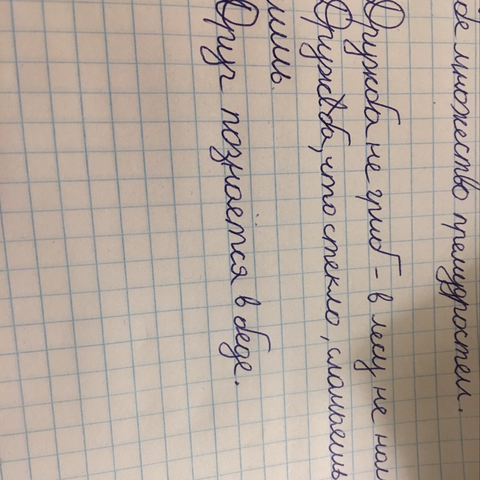 де множество премудростей.
Дружба не гриб - в лесу не най
Дружба, что стекло, сломаешь
Друг познаётся в беде.